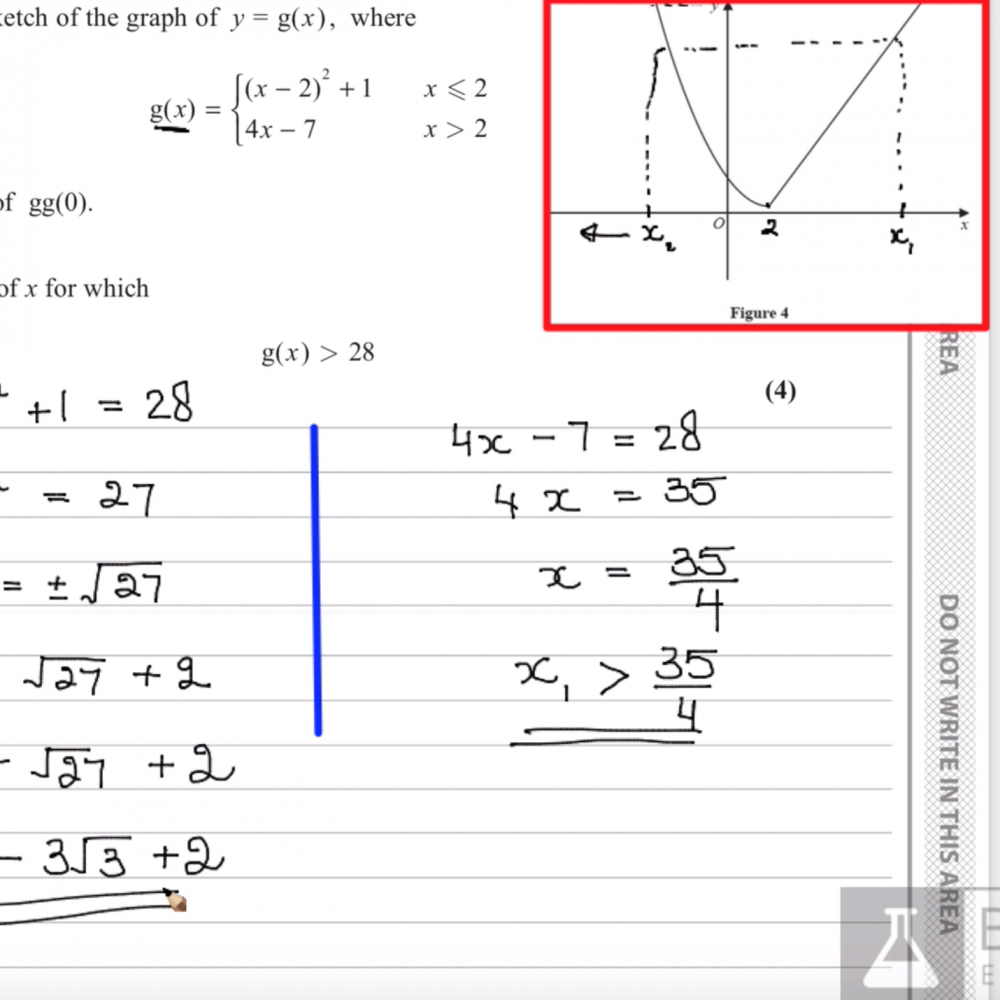 ketch of the graph of y = g(x), where
g(x) = { (x − 2)² + 1 x ⩽ 2
4x − 7 x > 2
of gg(0).
of x for which
g(x) > 28
(4)
y
O 2 x
x₂ x₁
Figure 4
+1 = 28
= 27
= ± √27
√27 + 2
- √27 + 2
- 3√3 + 2
4x − 7 = 28
4x = 35
x = 35/4
x₁ > 35/4
REA
DO NOT WRITE IN THIS AREA
E